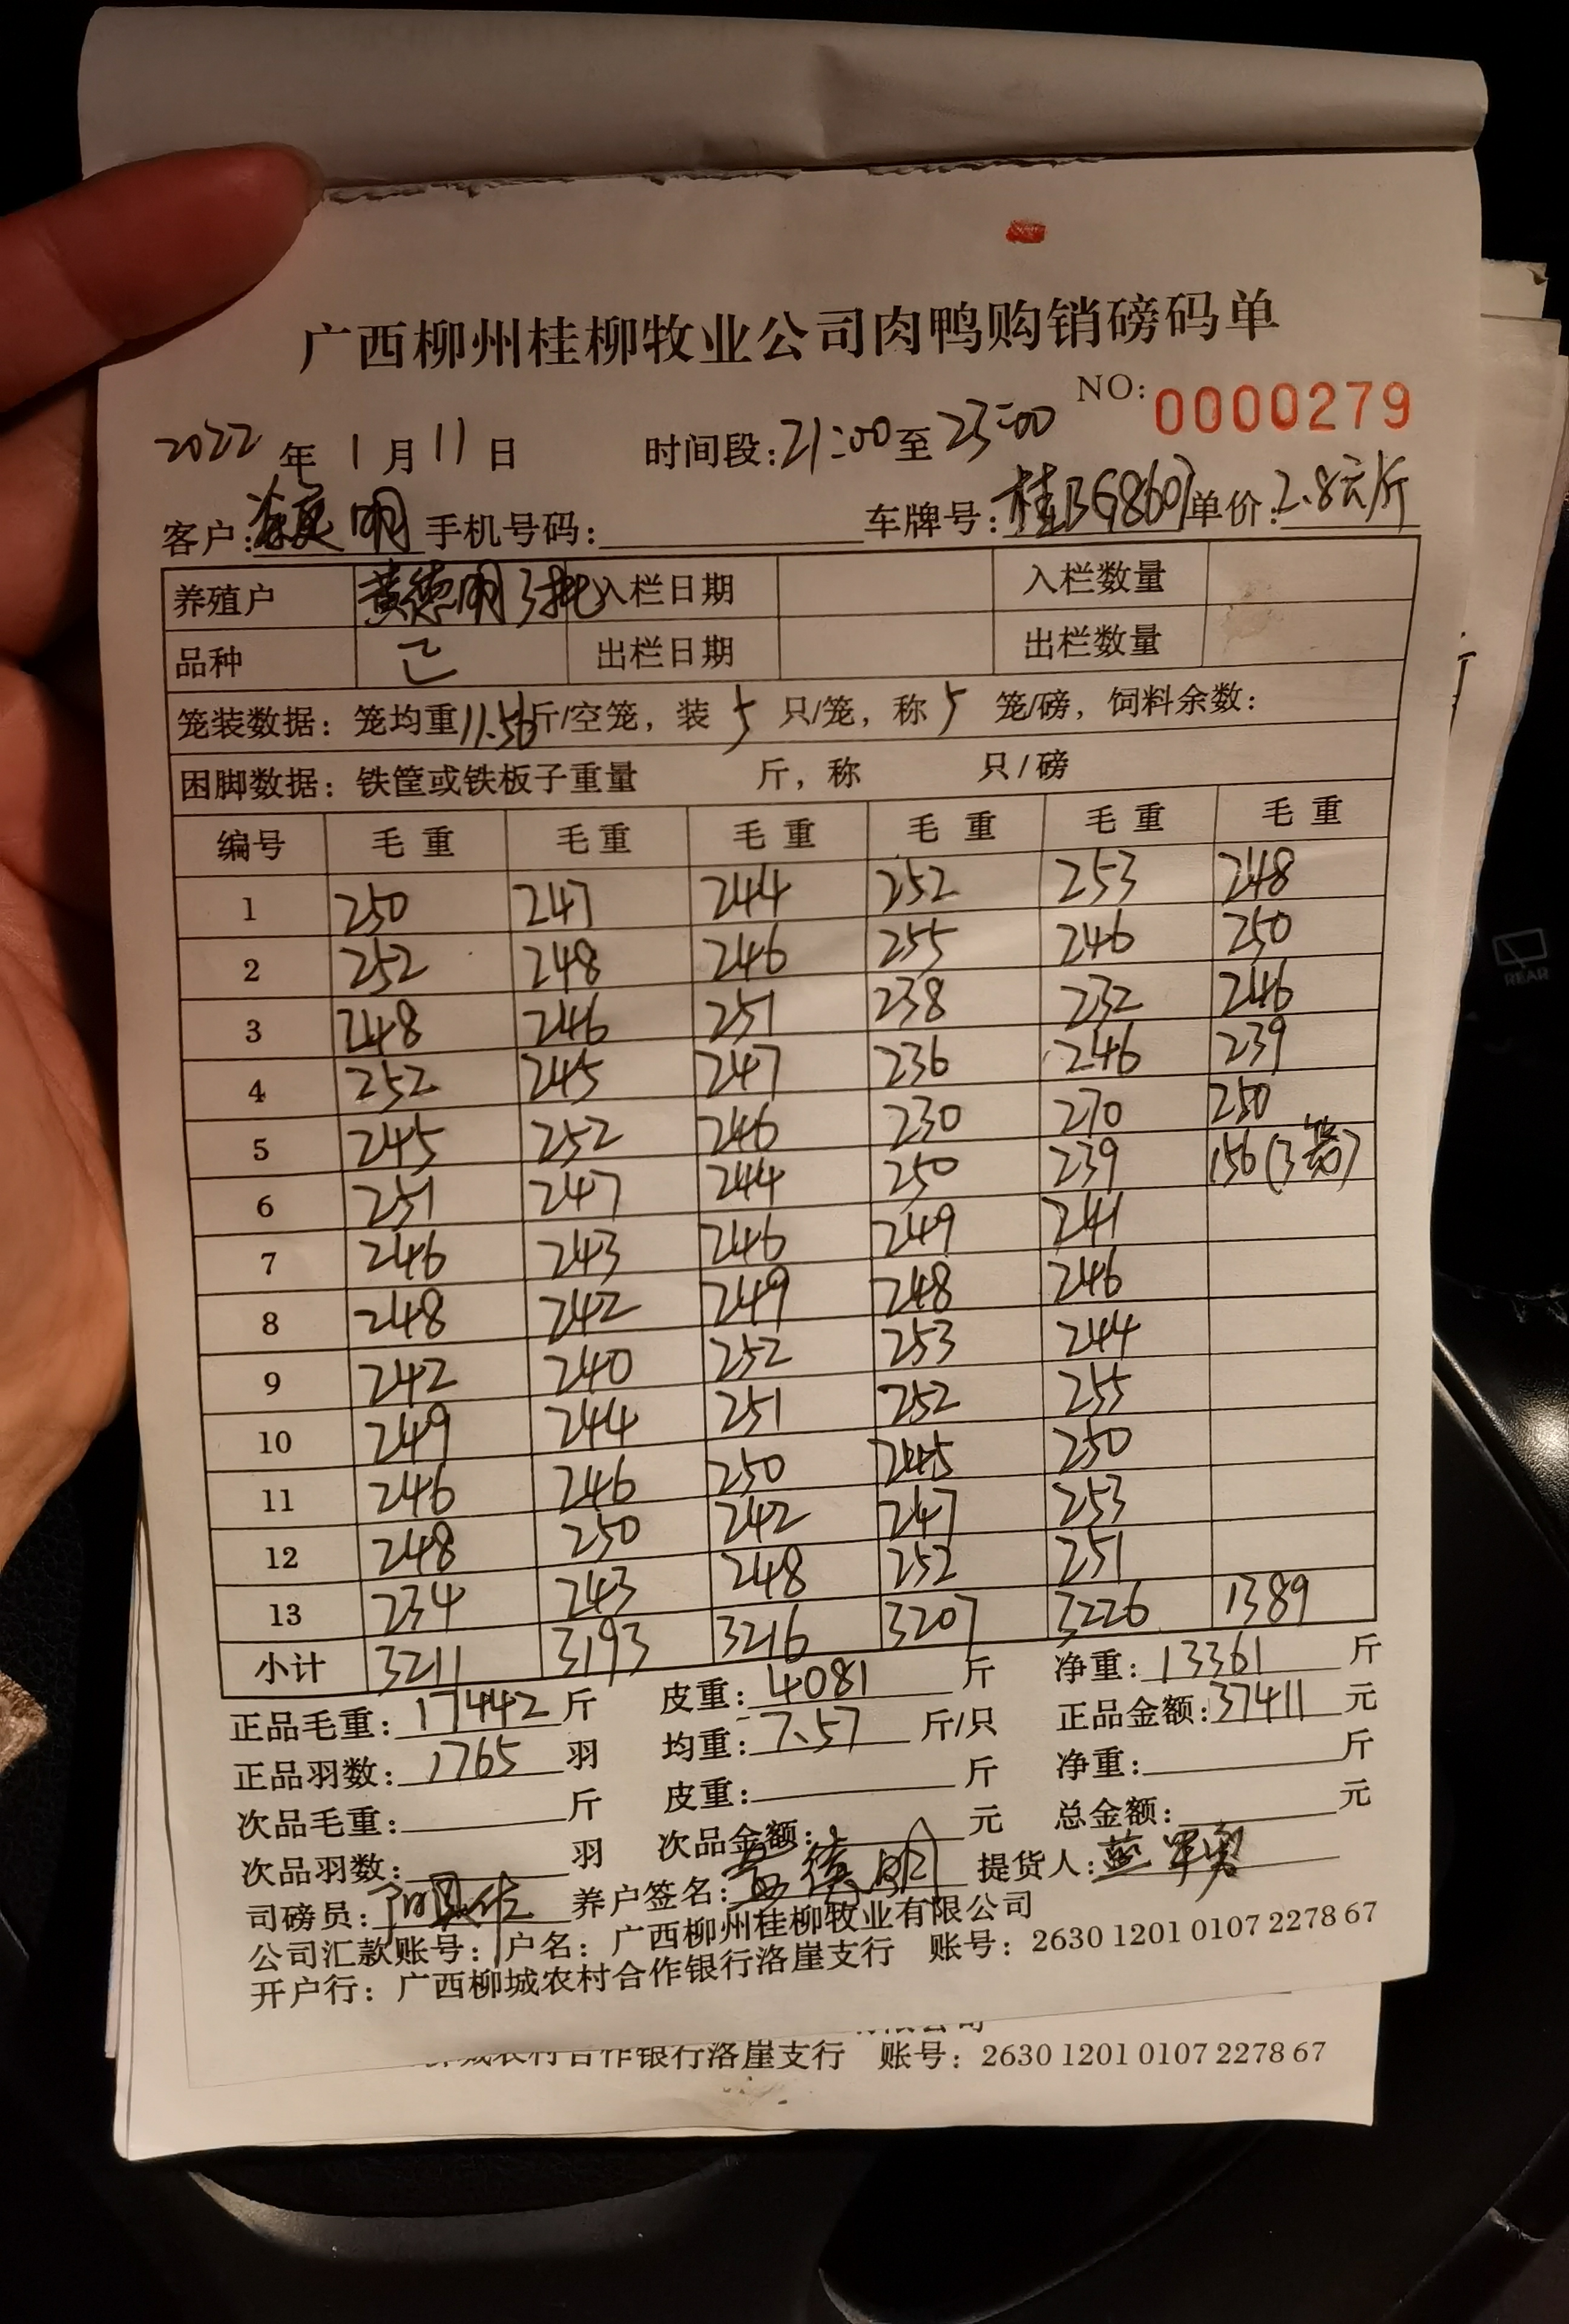 广西柳州桂柳牧业公司肉鸭购销磅码单
NO: 0000279
2022 年 1 月 11 日 时间段: 21:00 至 23:00
客户: 明 手机号码: 车牌号: 桂BG8607 单价: 2.8元/斤
养殖户 黄德明3批 入栏日期 入栏数量
品种 出栏日期 出栏数量
笼装数据: 笼均重 11.56 斤/空笼, 装 5 只/笼, 称 5 笼/磅, 饲料余数:
困脚数据: 铁筐或铁板子重量 斤, 称 只/磅
编号 毛重 毛重 毛重 毛重 毛重 毛重
1 250 247 244 252 253 248
2 252 248 246 255 246 250
3 248 246 251 238 232 246
4 252 245 247 236 246 239
5 245 252 246 230 270 250
6 251 247 244 250 239 156(3笼)
7 246 243 246 249 241
8 248 242 249 248 246
9 242 240 252 253 244
10 249 244 251 252 255
11 246 246 250 245 250
12 248 250 242 247 253
13 234 243 248 252 251
小计 3211 3193 3216 3207 3226 1389
正品毛重: 17442 斤 皮重: 4081 斤 净重: 13361 斤
正品羽数: 1765 羽 均重: 7.57 斤/只 正品金额: 37411 元
次品毛重: 斤 皮重: 斤 净重: 斤
次品羽数: 羽 次品金额: 元 总金额: 元
司磅员: 养户签名: 黄德明 提货人: 蓝
公司汇款账号: 户名: 广西柳州桂柳牧业有限公司
开户行: 广西柳城农村合作银行洛崖支行 账号: 2630 1201 0107 2278 67
农村合作银行洛崖支行 账号: 2630 1201 0107 2278 67
REAR